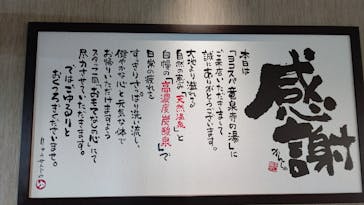 感謝
本日は
「ヨコスパ竜泉寺の湯」に
ご来店いただきまして
誠にありがとうございます。
大地より溢れでる
自然の恵み「天然温泉」と
自慢の「高濃度炭酸泉」で
日常の疲れを
すっきりさっぱり洗い流し、
健やかな心と元気な体で
お帰りいただけますよう
スタッフ一同「おもてなしの心」にて
尽力させていただきます。
ではごゆるりと
おくつろぎくださいませ。